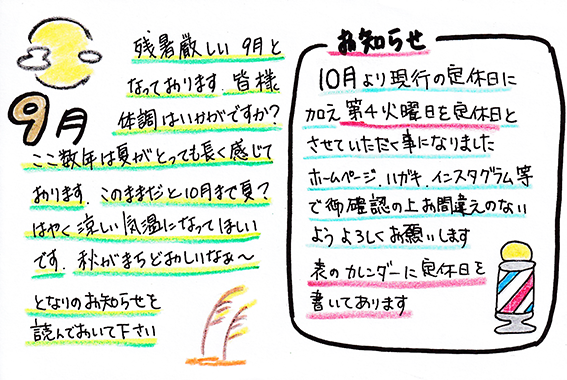 9月
残暑厳しい9月と
なっております。皆様
体調はいかがですか?
ここ数年は夏がとっても長く感じて
おります。このままだと10月まで夏?
はやく涼しい気温になってほしい
です。秋がまちどおしいなぁ〜
となりのお知らせを
読んでおいて下さい
お知らせ
10月より現行の定休日に
加え第4火曜日を定休日と
させていただく事になりました
ホームページ、ハガキ、インスタグラム等
で御確認の上お間違えのない
ようよろしくお願いします
表のカレンダーに定休日を
書いてあります